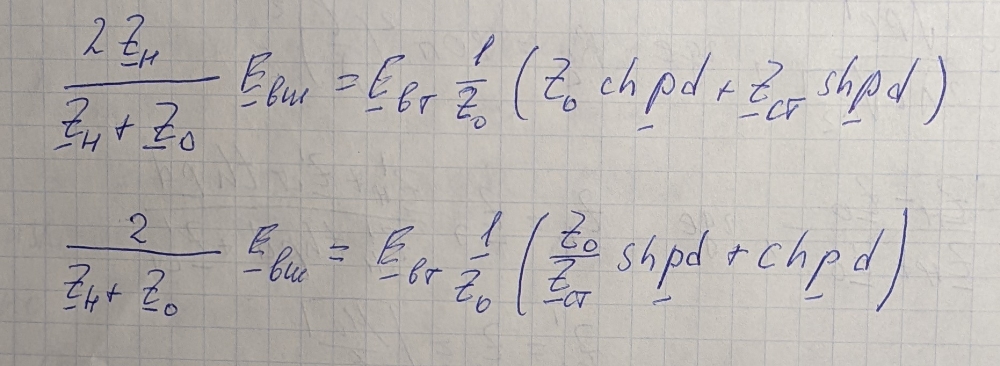 2 Z̲н / (Z̲н + Z̲0) E̲вш = E̲вт 1/Z0 (Z0 ch p̲d + Z̲ст sh p̲d)
2 / (Z̲н + Z̲0) E̲вш = E̲вт 1/Z0 (Z0/Z̲ст sh p̲d + ch p̲d)